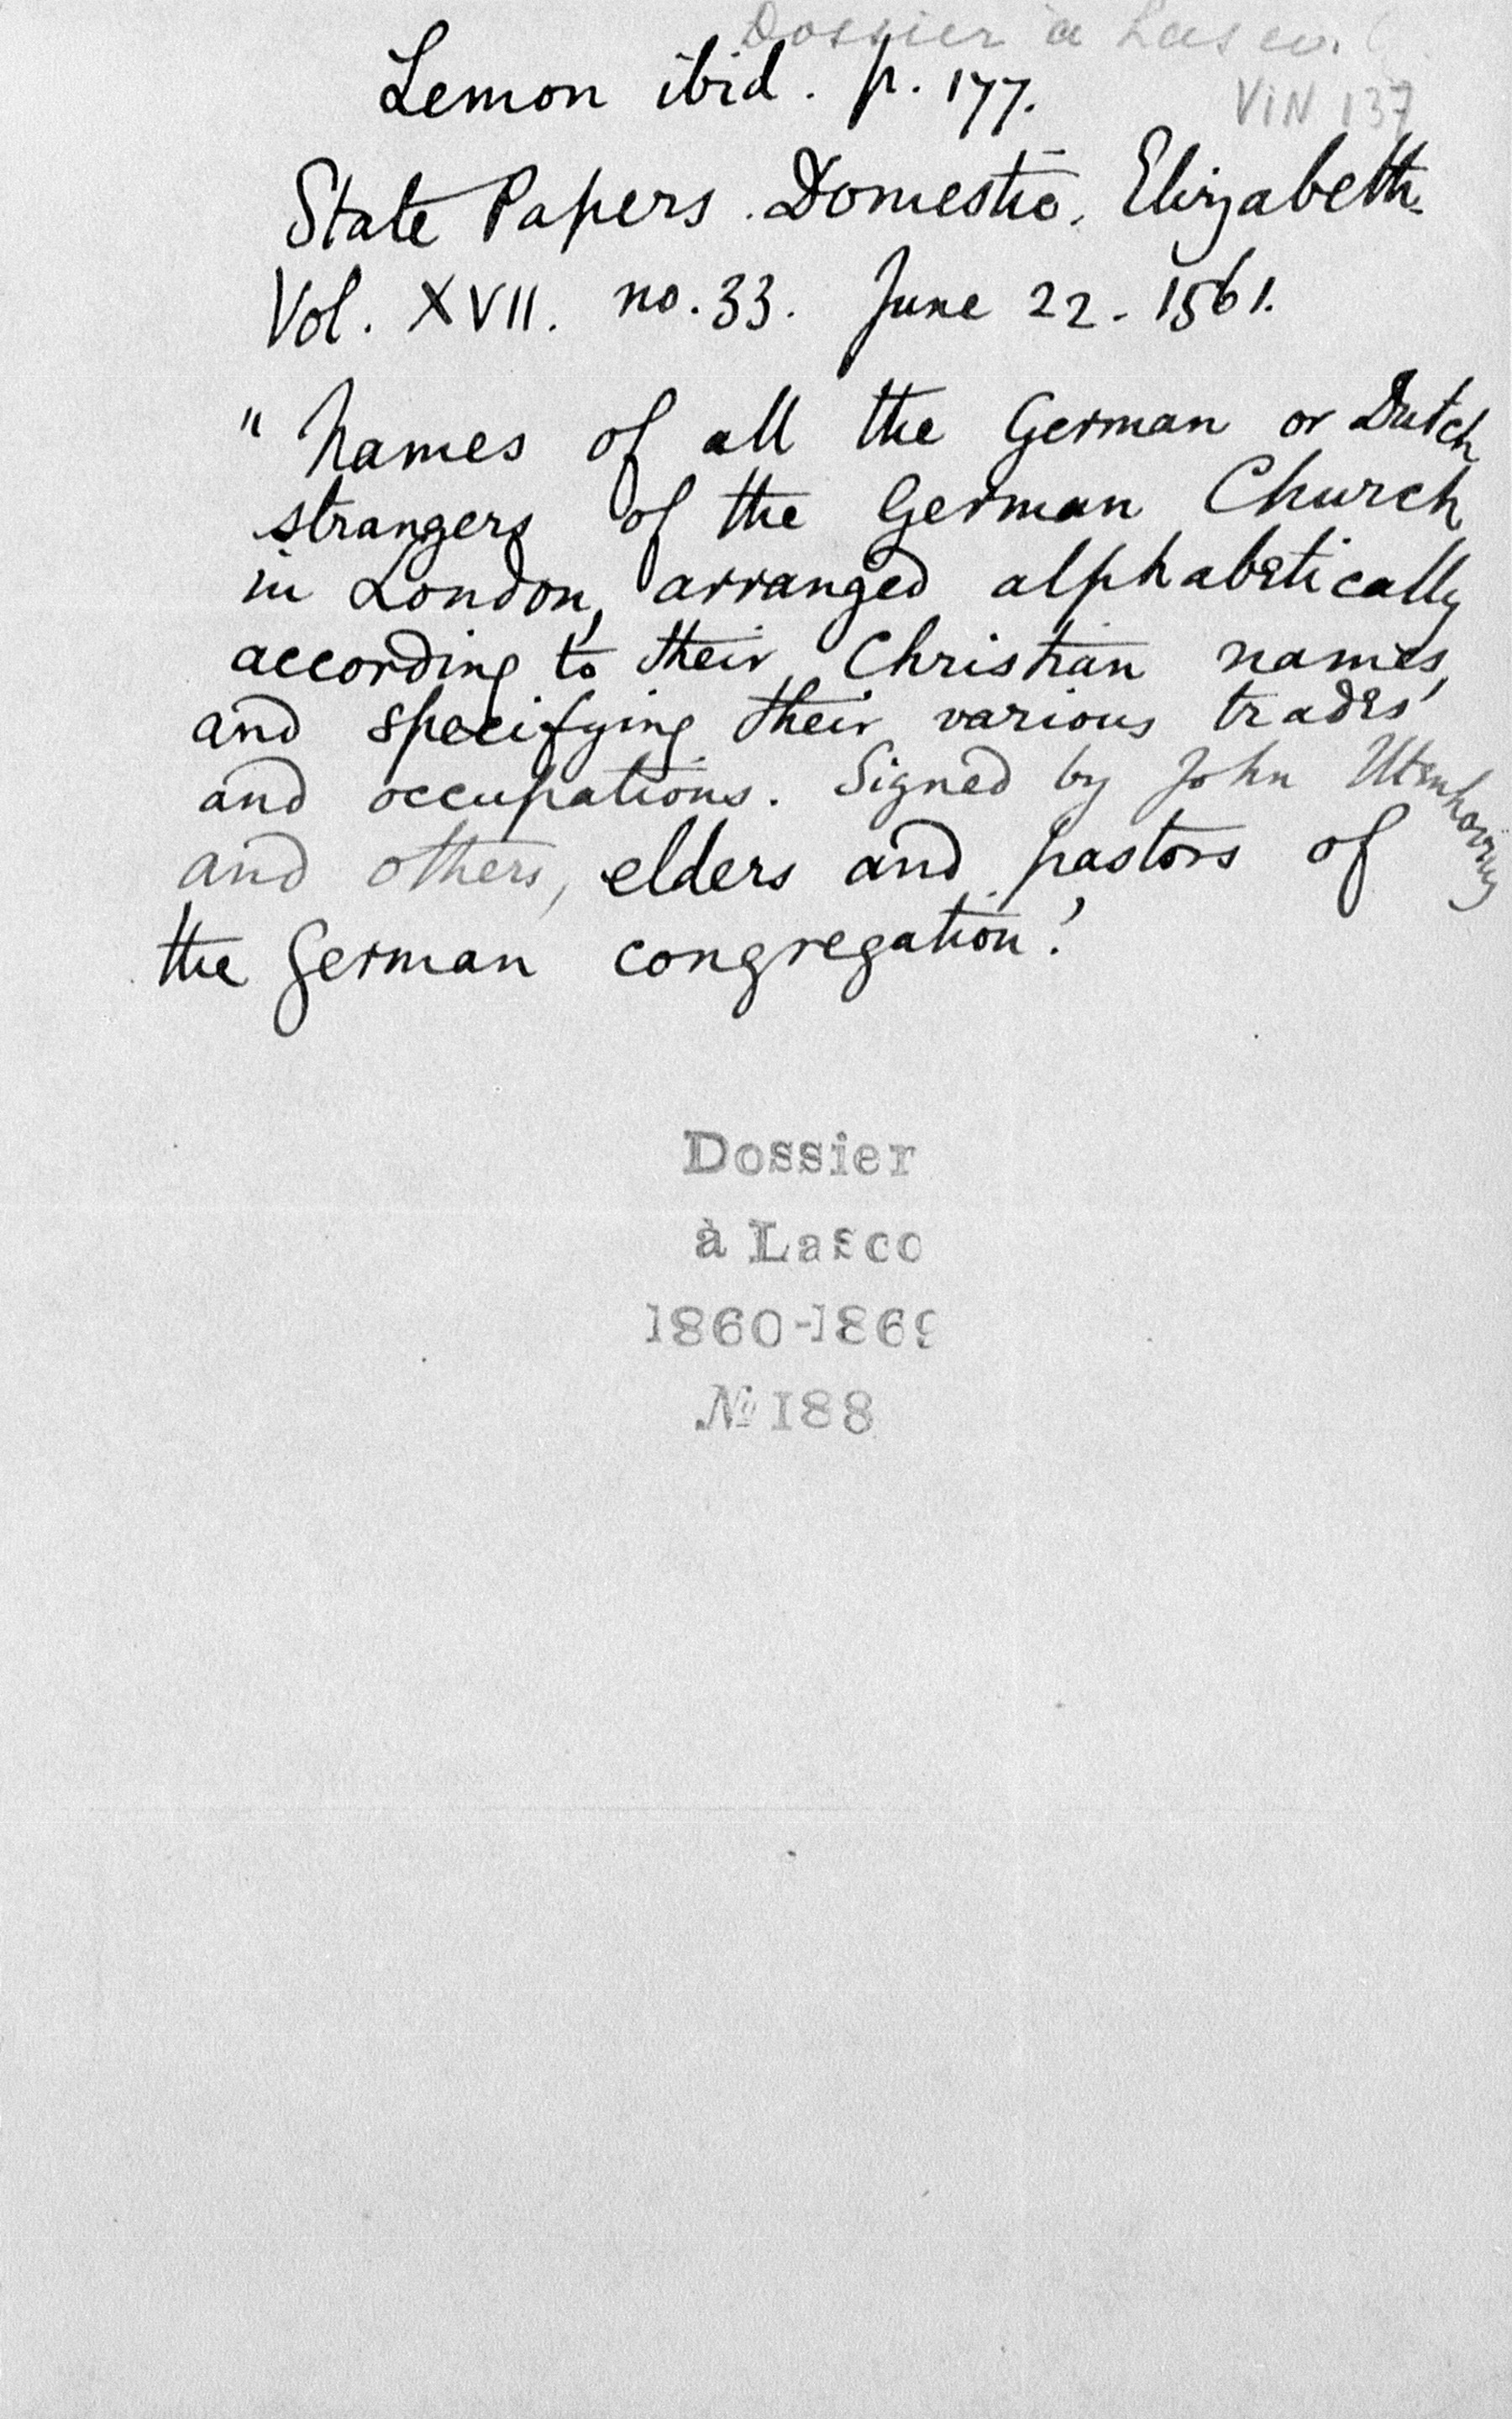 Dossier à Lasco.
Lemon ibid. p. 177.
VIN 137
State Papers. Domestic. Elizabeth.
Vol. XVII. no. 33. June 22. 1561.
" Names of all the German or Dutch
strangers of the German Church
in London, arranged alphabetically
according to their Christian names,
and specifying their various trades
and occupations. Signed by John Utenhovius
and others, elders and pastors of
the German congregation."
Dossier
à Lasco
1860-1869
№ 188